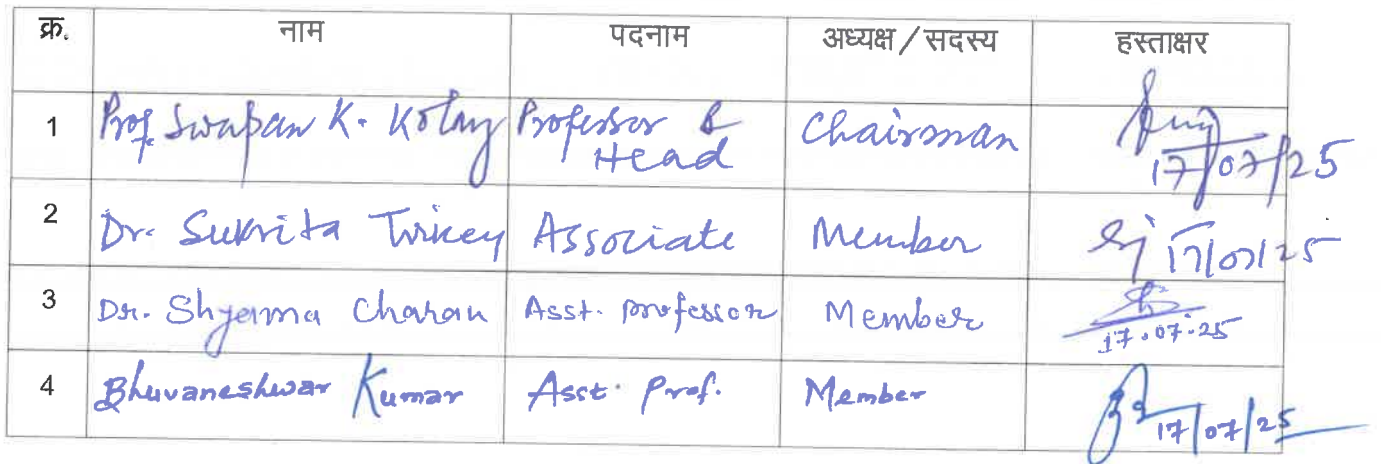 क्र. नाम पदनाम अध्यक्ष/सदस्य हस्ताक्षर
1 Prof. Swapan K. Kolay Professor & Head Chairman 17/07/25
2 Dr. Sukrita Tirkey Associate Member 17/07/25
3 Dr. Shyama Charan Asst. professor Member 17.07.25
4 Bhuvaneshwar Kumar Asst. Prof. Member 17/07/25